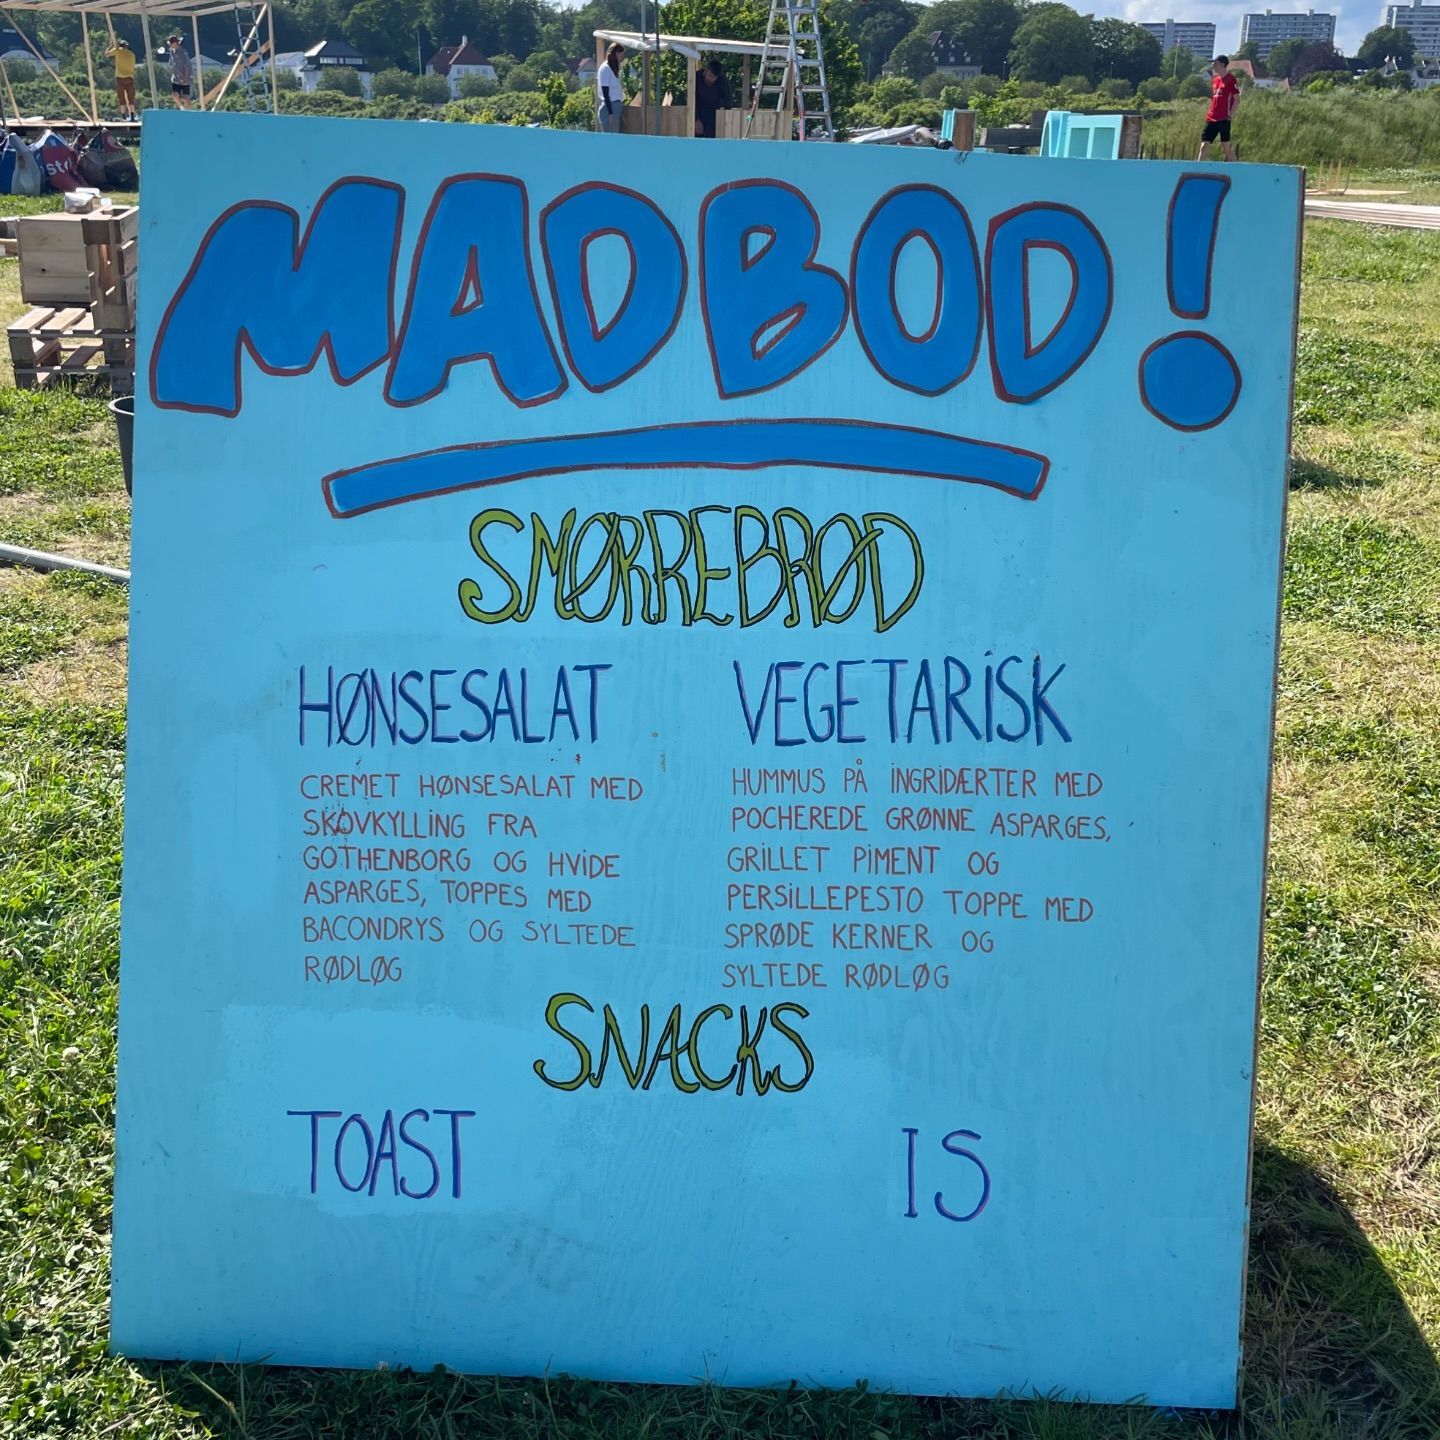 MADBOD!
SMØRREBRØD
HØNSESALAT
CREMET HØNSESALAT MED
SKOVKYLLING FRA
GOTHENBORG OG HVIDE
ASPARGES, TOPPES MED
BACONDRYS OG SYLTEDE
RØDLØG
VEGETARISK
HUMMUS PÅ INGRIDÆRTER MED
POCHEREDE GRØNNE ASPARGES,
GRILLET PIMENT OG
PERSILLEPESTO TOPPE MED
SPRØDE KERNER OG
SYLTEDE RØDLØG
SNACKS
TOAST
IS